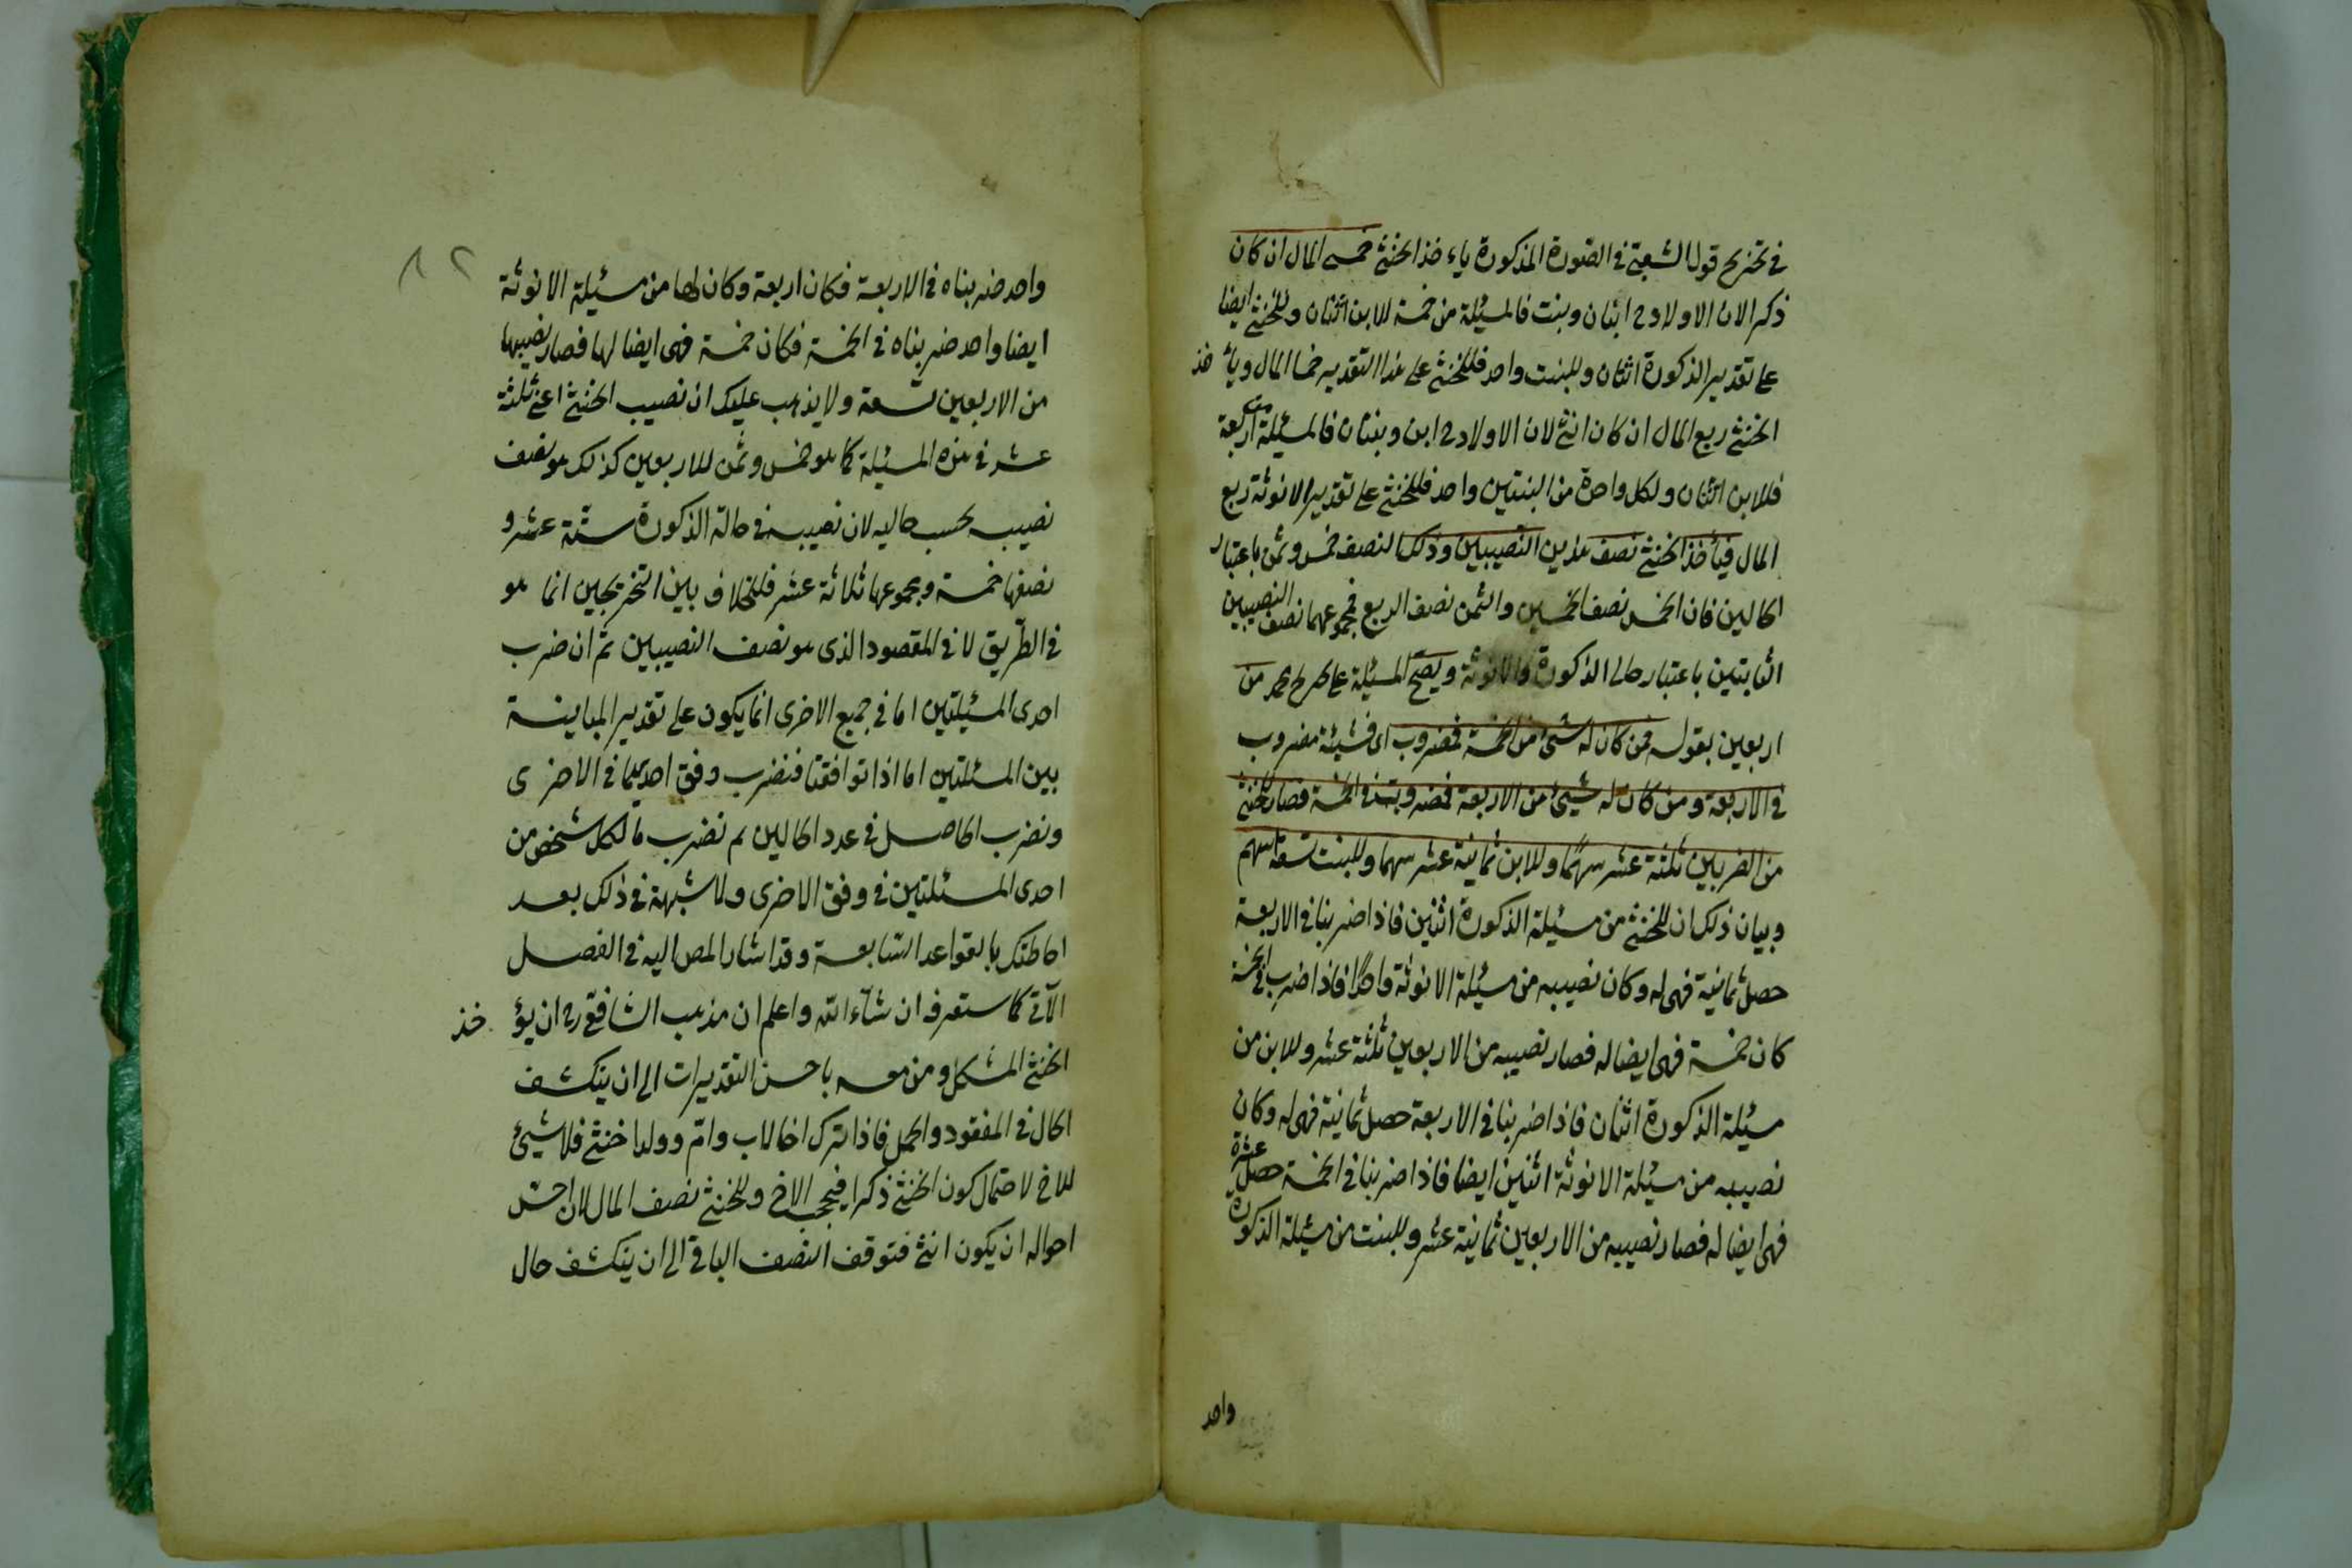 في تخريج قول الشعبي في الصورة المذكورة ياء خذ الخنثى خمسي المال ان كان
ذكرا لان الاولاد ح ابنان وبنت فالمسئلة من خمسة للابن اثنان وللخنثى ايضا
على تقدير الذكورة اثنان وللبنت واحد فللخنثى على هذا التقدير خمسا المال ويأ خذ
الخنثى ربع المال ان كان انثى لان الاولاد ح ابن وبنتان فالمسئلة من اربعة
فللابن اثنان ولكل واحدة من البنتين واحد فللخنثى على تقدير الانوثة ربع
المال فيأخذ الخنثى نصف هذين النصيبين وذلك النصف خمس وثمن باعتبار
الحالين فان الخمس نصف الخمسين والثمن نصف الربع فمجموعهما نصف النصيبين
الثابتين باعتبار حالى الذكورة والانوثة ويصح المسئلة على تخريج محمد من
اربعين بقوله فمن كان له شئ من الخمسة فمضروب اى فشيئه مضروب
في الاربعة ومن كان له شيئ من الاربعة فمضروبة في الخمسة فصار للخنثى
من الضربين ثلثة عشر سهمًا وللابن ثمانية عشر سهما وللبنت تسعة اسهم
وبيان ذلك ان للخنثى من مسئلة الذكورة اثنين فاذا ضربنا في الاربعة
حصل ثمانية فهى له وكان نصيبه من مسئلة الانوثة واحدًا فاذا ضرب في الخمسة
كان خمسة فهى ايضا له فصار نصيبه من الاربعين ثلثة عشر وللابن من
مسئلة الذكورة اثنان فاذا ضربنا في الاربعة حصل ثمانية فهى له وكان
نصيبه من مسئلة الانوثة اثنين ايضا فاذا ضربنا في الخمسة حصل عشرة
فهى ايضا له فصار نصيبه من الاربعين ثمانية عشر وللبنت من مسئلة الذكورة
واحد
٨٢
واحد ضربناه في الاربعة فكان اربعة وكان لها من مسئلة الانوثة
ايضا واحد ضربناه في الخمسة فكان خمسة فهى ايضا لها فصار نصيبها
من الاربعين تسعة ولا يذهب عليك ان نصيب الخنثى اعنى ثلثة
عشر في هذه المسئلة كما هو خمس وثمن للاربعين كذلك هو نصف
نصيبه بحسب حاليه لان نصيبه في حالة الذكورة ستة عشر و
نصفها خمسة ومجموعها ثلاثة عشر فللخلاف بين التخريجين انما هو
في الطريق لا في المقصود الذى هو نصف النصيبين ثم ان ضرب
احدى المسئلتين اما في جميع الاخرى انما يكون على تقدير المباينة
بين المسئلتين اما اذا توافقتا فنضرب وفق احديهما في الاخرى
ونضرب الحاصل في عدد الحالين ثم نضرب ما لكل شخص من
احدى المسئلتين في وفق الاخرى ولا شبهة في ذلك بعد
احاطتك بالقواعد السابعة وقد اشار المص اليه في الفصل
الآتى كما ستعرفه ان شآء الله واعلم ان مذهب الشافعى رح ان يؤ خذ
الخنثى المشكل ومن معه باحسن التقديرات الى ان ينكشف
الحال في المفقود والحمل فاذا ترك اخا لاب وام وولدا خنثى فلا شيئ
للاخ لاحتمال كون الخنثى ذكرا فيحجب الاخ وللخنثى نصف المال لان احسن
احواله ان يكون انثى فتوقف النصف الباقى الى ان ينكشف حال